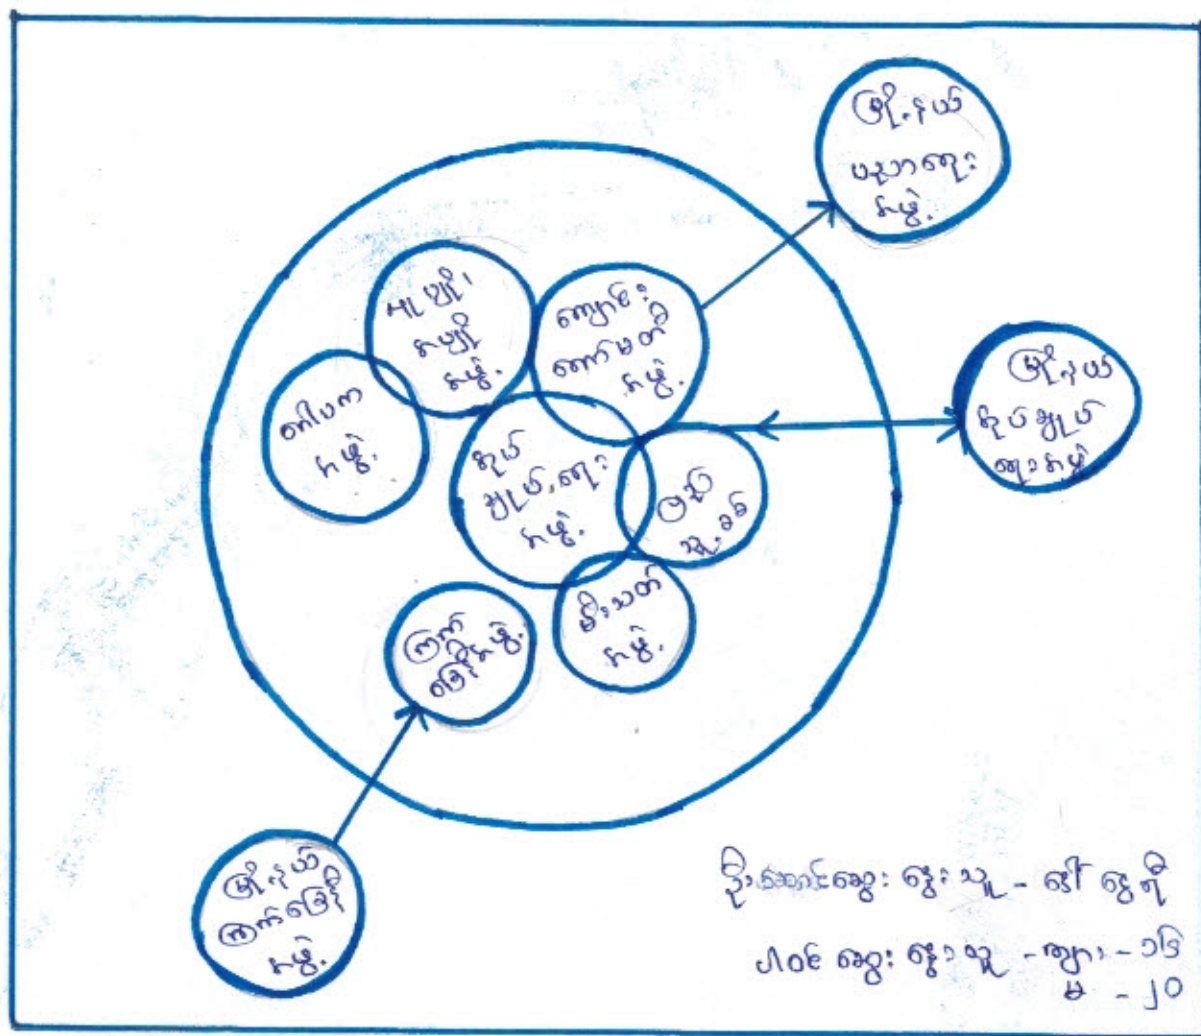 မြို့နယ်
ပညာရေး
အဖွဲ့
ကာ/ပျို၊
ကျောင်း
တော်မတီ
အဖွဲ့
အဖွဲ့
အဖွဲ့
မြို့နယ်
အုပ်ချုပ်
ရေးအဖွဲ့
အုပ်
ချုပ်ရေး
အဖွဲ့
ပြည်
သူ့စစ်
မီးသတ်
အဖွဲ့
ကြက်
ခြေနီအဖွဲ့
မြို့နယ်
ကြက်ခြေနီ
အဖွဲ့
ဦးဆောင်ဆွေးနွေးသူ - ဒေါ်နွေရီ
ပါဝင်ဆွေးနွေးသူ - ကျား - ၁၆
မ - ၂၀